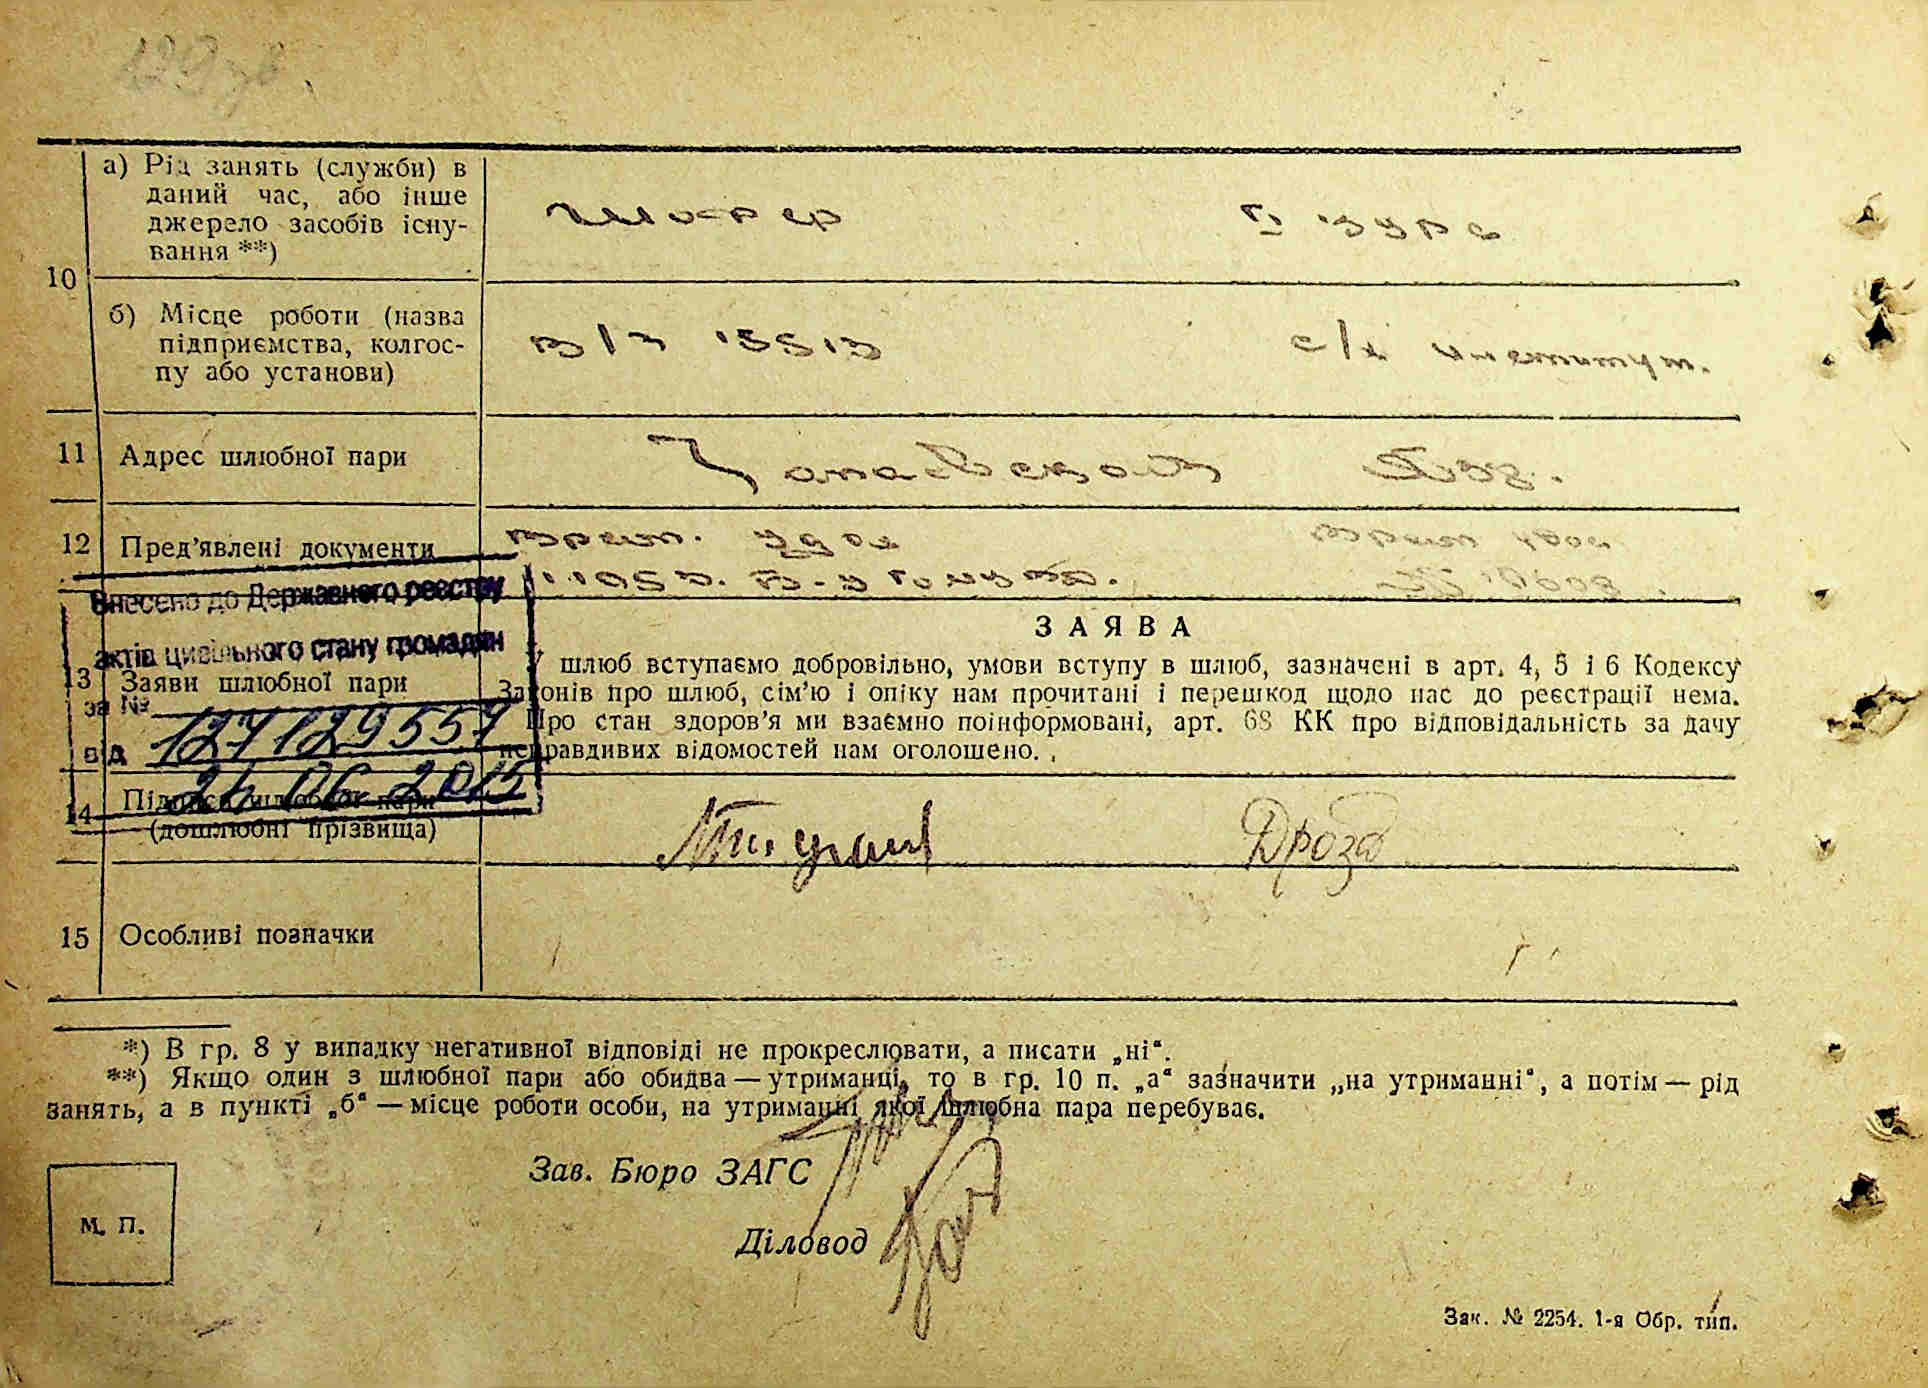 а) Рід занять (служби) в
даний час, або інше
джерело засобів існу-
вання **)
10
шофер
б) Місце роботи (назва
підприємства, колгос-
пу або установи)
с/х институт.
11 Адрес шлюбної пари
12 Пред’явлені документи
Внесено до Державного реєстру
актів цивільного стану громадян
за №
від
24 06 2015
ЗАЯВА
13 Заяви шлюбної пари
У шлюб вступаємо добровільно, умови вступу в шлюб, зазначені в арт. 4, 5 і 6 Кодексу
Законів про шлюб, сім’ю і опіку нам прочитані і перешкод щодо нас до реєстрації нема.
Про стан здоров’я ми взаємно поінформовані, арт. 68 КК про відповідальність за дачу
неправдивих відомостей нам оголошено.
14 Підписи шлюбної пари
(дошлюбні прізвища)
Дрозд
15 Особливі позначки
*) В гр. 8 у випадку негативної відповіді не прокреслювати, а писати „ні“.
**) Якщо один з шлюбної пари або обидва — утриманці, то в гр. 10 п. „а“ зазначити „на утриманні“, а потім — рід
занять, а в пункті „б“ — місце роботи особи, на утриманні якої шлюбна пара перебуває.
Зав. Бюро ЗАГС
М. П.
Діловод
Зак. № 2254. 1-я Обр. тип.